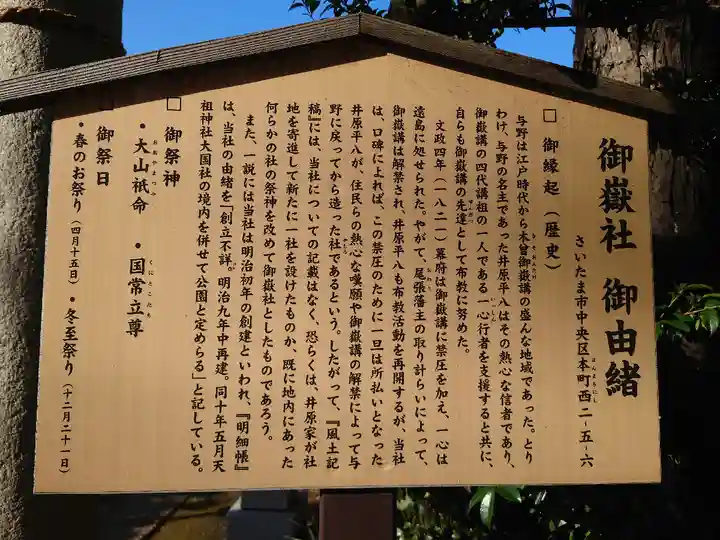 御嶽社 御由緒
さいたま市中央区本町西二-五-六
ほんまちにし
□ 御縁起（歴史）
与野は江戸時代から木曽御嶽講の盛んな地域であった。とり
きそおんたけ
わけ、与野の名主であった井原平八はその熱心な信者であり、
御嶽講の四代講祖の一人である一心行者を支援すると共に、
いっしん
自らも御嶽講の先達として布教に努めた。
せんだつ
文政四年（一八二一）幕府は御嶽講に禁圧を加え、一心は
遠島に処せられた。やがて、尾張藩主の取り計らいによって、
おわり
御嶽講は解禁され、井原平八も布教活動を再開するが、当社
は、口碑によれば、この禁圧のために一旦は所払いとなった
井原平八が、住民らの熱心な嘆願や御嶽講の解禁によって与
野に戻ってから造った社であるという。したがって、『風土記
やしろ
稿』には、当社についての記載はなく、恐らくは、井原家が社
地を寄進して新たに一社を設けたものか、既に地内にあった
何らかの社の祭神を改めて御嶽社としたものであろう。
また、一説には当社は明治初年の創建といわれ、『明細帳』
は、当社の由緒を「創立不詳。明治九年中再建。同十年五月天
祖神社大国社の境内を併せて公園と定めらる」と記している。
□ 御祭神
・大山祇命 ・国常立尊
おおやまつみ くにとこたち
□ 御祭日
・春のお祭り（四月十五日）・冬至祭り（十二月二十一日）